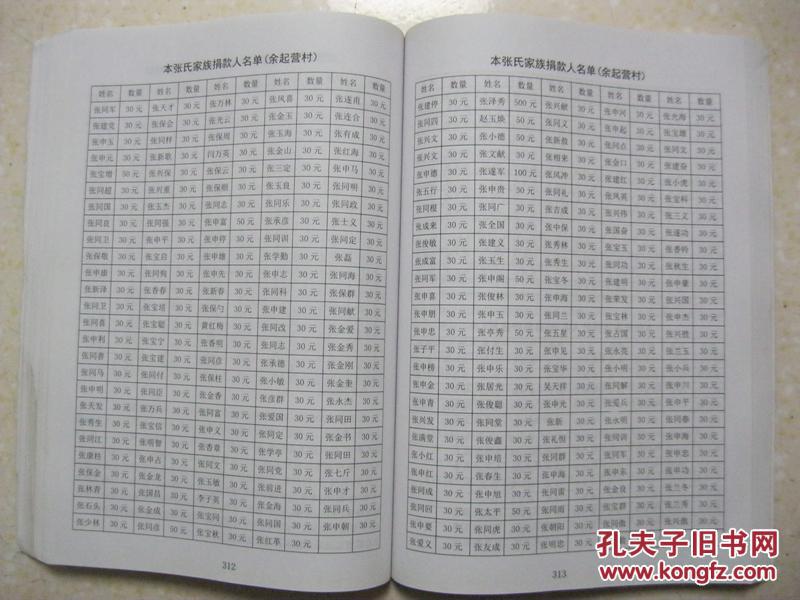 本张氏家族捐款人名单(余起营村)
姓名 数量 姓名 数量 姓名 数量 姓名 数量 姓名 数量
张同军 30元 张天才 30元 张万林 30元 张凤喜 30元 张遂甫 30元
张建党 30元 张保会 30元 张光云 30元 张金玉 30元 张连合 30元
张申玉 30元 张同样 30元 张保周 30元 张玉海 30元 张有成 30元
张申元 30元 张新歌 30元 闫万英 30元 张金山 30元 张红海 30元
张宝增 50元 张兴保 30元 张保云 30元 张三定 30元 张申马 30元
张同超 30元 张兴重 30元 张保顺 30元 张玉良 30元 张同明 30元
张同国 30元 张玉杰 30元 张同志 30元 张同乐 30元 张同政 30元
张同良 30元 张同强 30元 张申富 50元 张承彦 30元 张士义 30元
张同卫 30元 张申平 30元 张申停 30元 张同训 30元 张同定 30元
张保敬 30元 张宝启 30元 张申雄 30元 张学勤 30元 张磊 30元
张申康 30元 张同狗 30元 张申先 30元 张申志 30元 张同海 30元
张新泽 30元 张香春 30元 张新春 30元 张同科 30元 张保群 30元
张同卫 30元 张宝塔 30元 张保勺 30元 张申建 30元 张同献 30元
张同喜 30元 张宝聪 30元 黄红梅 30元 张同改 30元 张金爱 30元
张申利 30元 张宝宁 30元 张香明 30元 张同志 30元 张金秀 30元
张同善 30元 张宝建 30元 张同彦 30元 张承德 30元 张金刚 30元
张同马 30元 张同付 30元 张保柱 30元 张小敏 30元 张金奎 30元
张申明 30元 张同臣 30元 张金香 30元 张彦群 30元 张永杰 30元
张天发 30元 张万兵 30元 张同富 30元 张爱国 30元 张同田 30元
张秀生 30元 张宝信 30元 张申义 30元 张同定 30元 张金书 30元
张同江 30元 张明智 30元 张香章 30元 张学亭 30元 张同田 30元
张康柱 30元 张申占 30元 张同文 30元 张同党 30元 张七斤 30元
张保金 30元 张金龙 30元 张玉敏 30元 张前进 30元 张申才 30元
张林青 30元 张国昌 30元 李子英 30元 张金海 30元 张同兵 30元
张石头 30元 张金成 30元 张宝同 30元 张同国 30元 张申朝 30元
张少林 30元 张同彦 50元 张宝秋 30元 张红革 30元
312
本张氏家族捐款人名单(余起营村)
姓名 数量 姓名 数量 姓名 数量 姓名 数量 姓名 数量
张建停 30元 张泽秀 500元 张兴献 30元 张申河 30元 张允海 30元
张同四 30元 赵玉焕 50元 张同义 30元 张申起 30元 张宝雄 30元
张兴文 30元 张小德 50元 张新敖 30元 张同点 30元 张同文 30元
张兴文 30元 张文献 30元 张相来 30元 张金口 30元 张建奋 30元
张申德 30元 张遂军 100元 张凤冲 30元 张建红 30元 张小虎 30元
张五行 30元 张申贵 30元 张同礼 30元 张凤英 30元 张宝科 30元
张同根 30元 张同广 30元 张吉成 30元 张兴伟 30元 张三义 30元
张成来 30元 张全国 30元 张中保 30元 张国奋 30元 张遂功 30元
张俊敏 30元 张建义 30元 张秀林 30元 张宝玉 30元 张香铃 30元
张成富 30元 张玉生 30元 张秀生 30元 张同功 30元 张秋生 30元
张同军 30元 张申阁 50元 张宝冬 30元 张建明 30元 张申肇 30元
张申喜 30元 张俊林 30元 张申海 30元 张荣发 30元 张兴国 30元
张申朋 30元 张申玉 30元 张同兰 30元 张宝林 30元 张申杰 30元
张申忠 30元 张亭秀 50元 张五星 30元 张占国 30元 张兴胜 30元
张子平 30元 张付生 30元 张申见 30元 张永亮 30元 张兰玉 30元
张申榜 30元 张申乐 30元 张宝华 30元 张小明 30元 张小兵 30元
张申金 30元 张居光 30元 吴天祥 30元 张同解 30元 张申川 30元
张申青 30元 张俊聪 30元 张申光 30元 张爱兵 30元 张申平 30元
张兴发 30元 张同堂 30元 张新 30元 张永明 30元 张同春 30元
张满堂 30元 张俊鑫 30元 张礼恒 30元 张同训 30元 张申海 30元
张小红 30元 张申培 30元 张同群 30元 张同军 30元 张申忠 30元
张申红 30元 张春生 30元 张申海 30元 张申东 30元 张申功 30元
张同成 30元 张申旭 30元 张同雷 30元 张金良 30元 张兰冬 30元
张同回 30元 张太平 50元 张同雨 30元 张宝群 30元 张兰秀 30元
张申要 30元 张同虎 30元 张朝阳 30元 张同傲 30元 张兴傲 30元
张爱义 30元 张友成 30元 张明忠 30元
313
孔夫子旧书网
www.kongfz.com